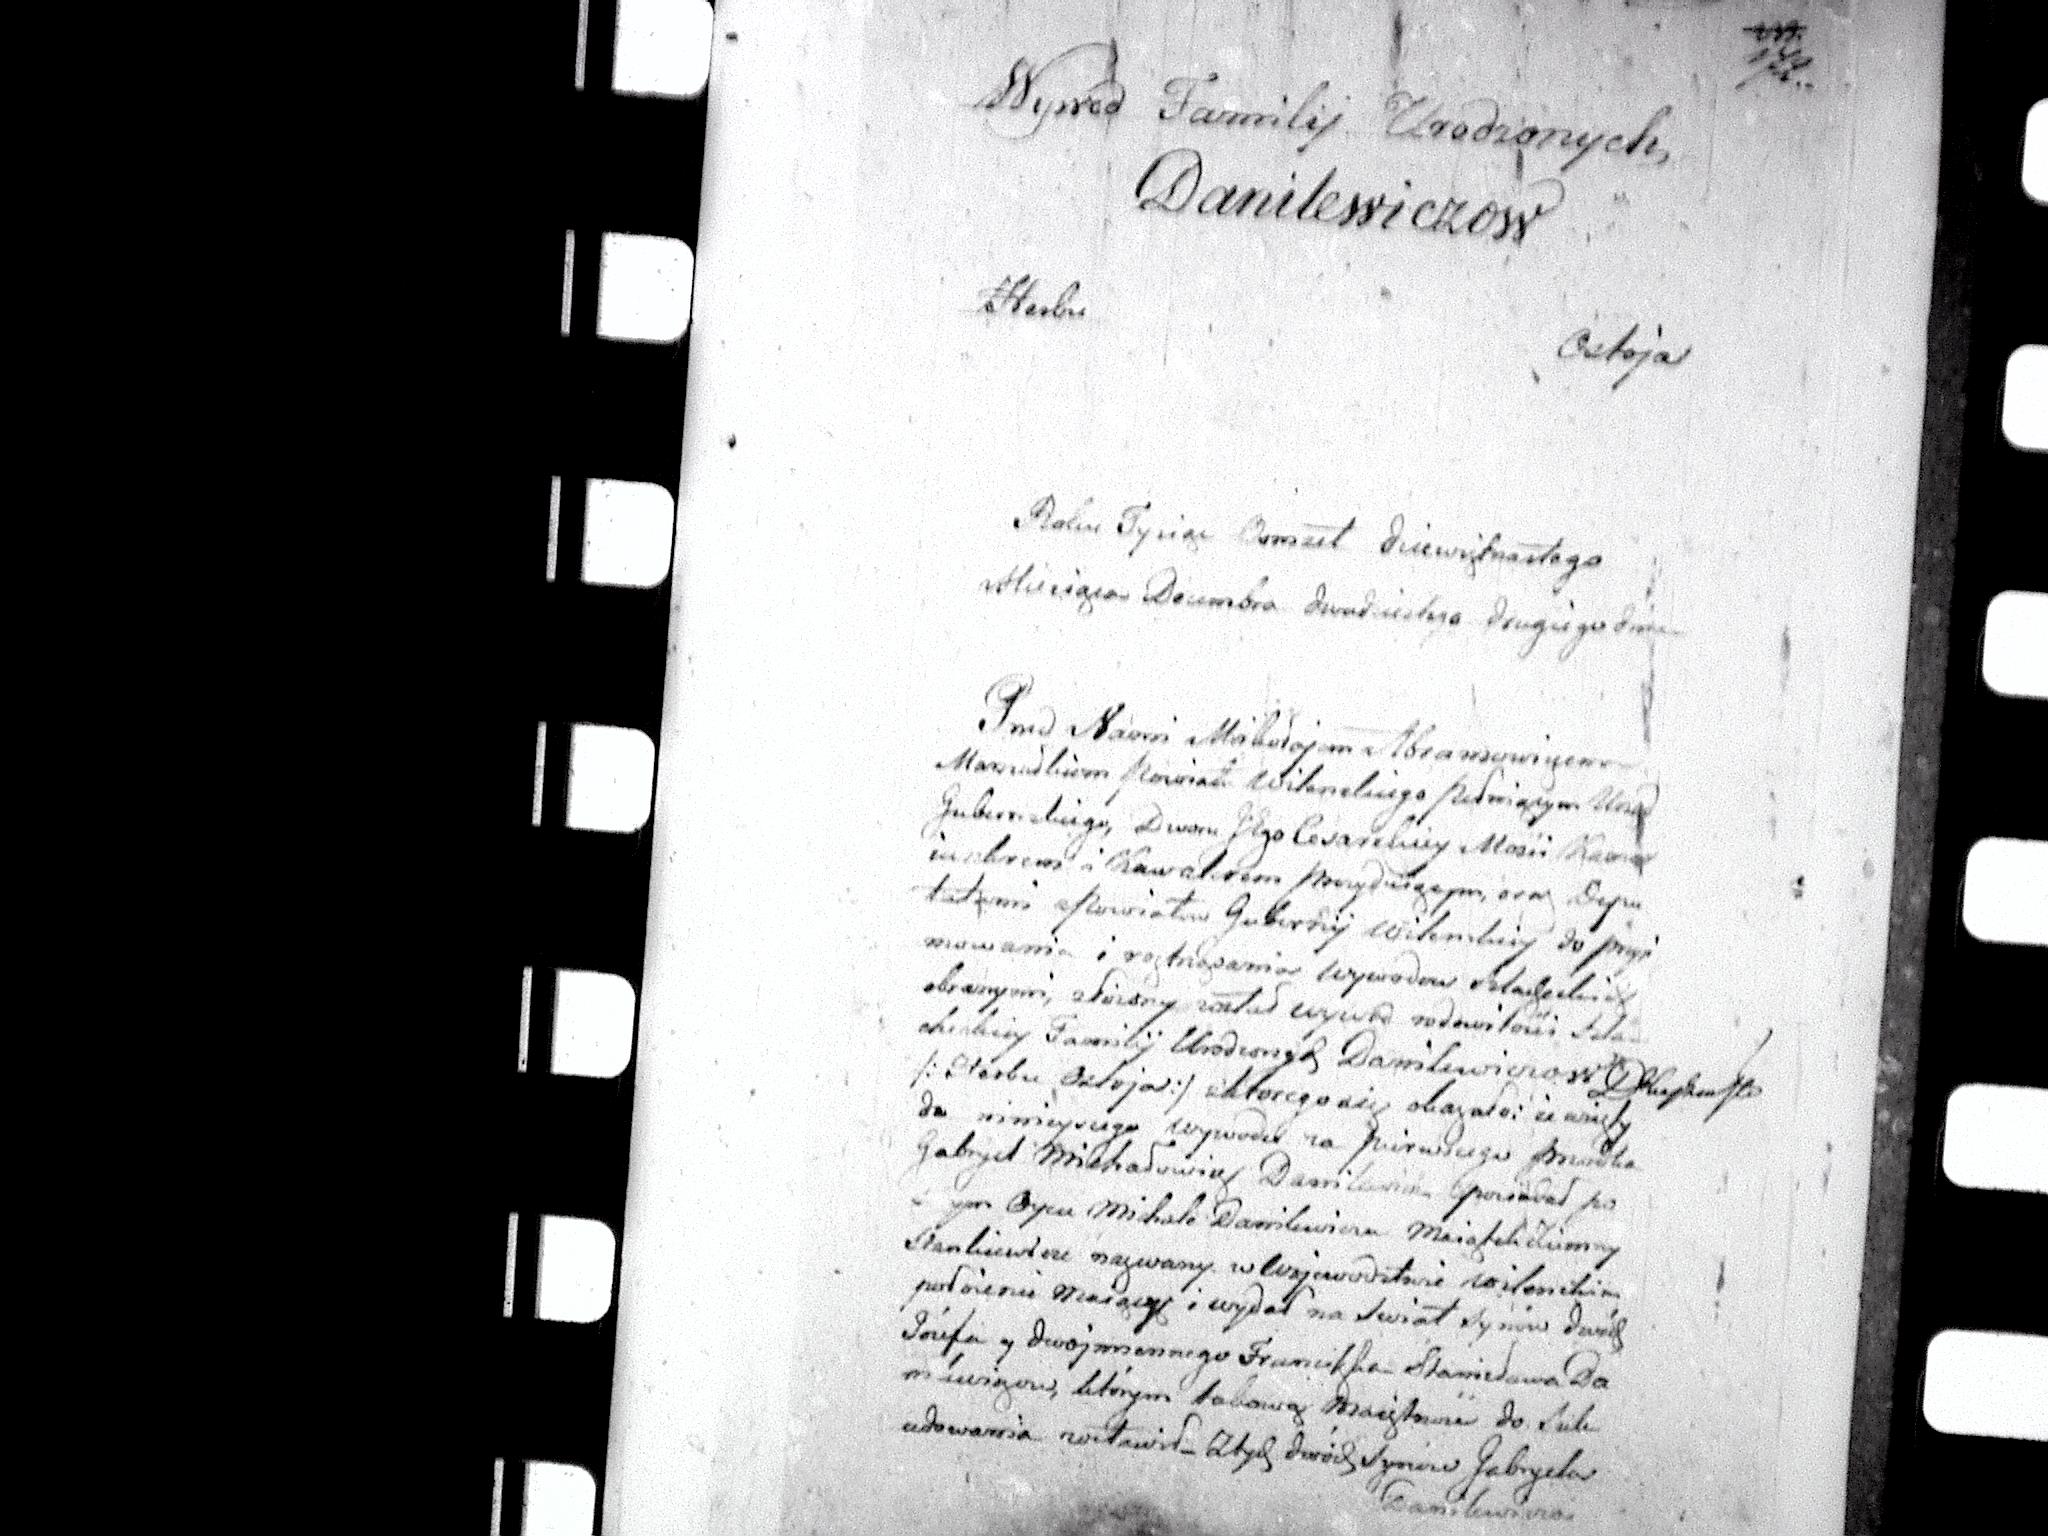 Wywod Familij Urodzonych
Danilewiczow
Herbu
Ostoja
Roku Tysiąc Osmset dziewiętnastego
Miesiąca Decembra dwudziestego drugiego dnia
Przed Nami Mikołajem Abramowiczem
Marszałkiem Powiatu Wilenskiego pełniącym Urząd
Gubernskiego, Dworu Jego Cesarskiey Mości Kamer
iunkrem i Kawalerem Prezyduiącym, oraz Depu
tatami z Powiatow Gubernij Wilenskiey do przyi
mowania i roztrząsania wywodow szlacheckich
obranymi, złożony został wywod rodowitości szla
checkiey Familij Urodzonych Danilewiczow
/: Herbu Ostoja :/ z ktorego się okazało: że wzięty
do ninieyszego wywodu za pierwszego przodka
Gabryel Michałowicz Danilewicz posiadał po
ym Oycu Michale Danilewiczu Maiątek Ziemny
Stankiewicze nazwany w Wojewodztwie Wilenskim
położenie maiący i wydał na świat synów dwóch
Józefa y dwojmiennego Franciszka Stanisława Da
nilewiczow, którym takową Maiętność do sukc
edowania zostawił. Z tych dwóch synów Gabryela
Danilewicza